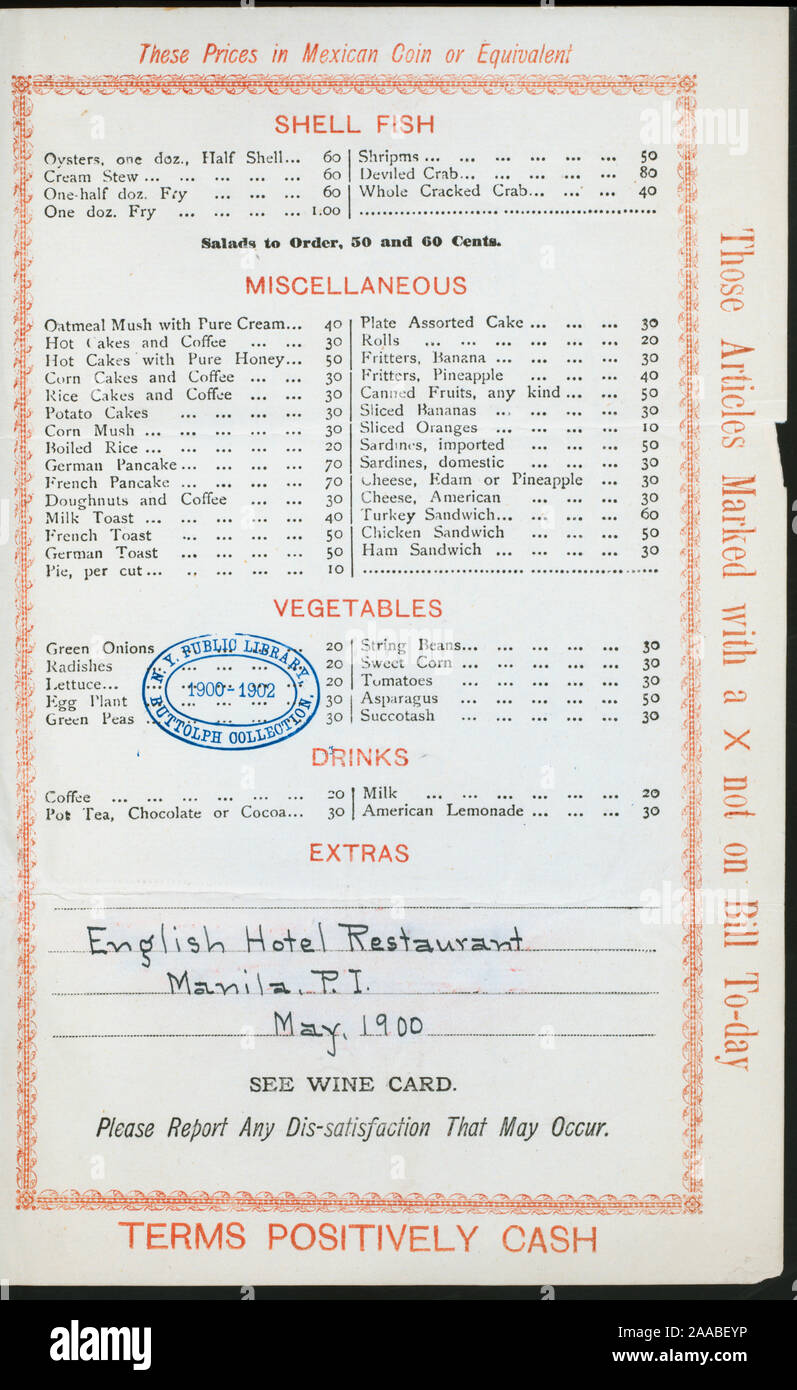 These Prices in Mexican Coin or Equivalent
SHELL FISH
Oysters, one doz., Half Shell... 60
Cream Stew ... ... ... ... ... 60
One-half doz. Fry ... ... ... 60
One doz. Fry ... ... ... ... 1.00
Shripms ... ... ... ... ... ... 50
Deviled Crab... ... ... ... ... 80
Whole Cracked Crab... ... ... 40
Salads to Order, 50 and 60 Cents.
MISCELLANEOUS
Oatmeal Mush with Pure Cream... 40
Hot Cakes and Coffee ... ... 30
Hot Cakes with Pure Honey... 50
Corn Cakes and Coffee ... ... 30
Rice Cakes and Coffee ... ... 30
Potato Cakes ... ... ... ... 30
Corn Mush ... ... ... ... ... 30
Boiled Rice ... ... ... ... ... 20
German Pancake ... ... ... ... 70
French Pancake ... ... ... ... 70
Doughnuts and Coffee ... ... 30
Milk Toast ... ... ... ... ... 40
French Toast ... ... ... ... 50
German Toast ... ... ... ... 50
Pie, per cut ... ... ... ... ... 10
Plate Assorted Cake ... ... ... 30
Rolls ... ... ... ... ... ... 20
Fritters, Banana ... ... ... ... 30
Fritters, Pineapple ... ... ... 40
Canned Fruits, any kind ... ... 50
Sliced Bananas ... ... ... ... 30
Sliced Oranges ... ... ... ... 10
Sardines, imported ... ... ... 50
Sardines, domestic ... ... ... 30
Cheese, Edam or Pineapple ... 30
Cheese, American ... ... ... 30
Turkey Sandwich... ... ... ... 60
Chicken Sandwich ... ... ... 50
Ham Sandwich ... ... ... ... 30
VEGETABLES
Green Onions ... 20
Radishes ... ... ... 20
Lettuce... ... 20
Egg Plant ... ... ... 30
Green Peas ... 30
String Beans... ... ... ... ... 30
Sweet Corn ... ... ... ... ... 30
Tomatoes ... ... ... ... ... 30
Asparagus ... ... ... ... ... 50
Succotash ... ... ... ... ... 30
N. Y. PUBLIC LIBRARY,
1900-1902
BUTTOLPH COLLECTION.
DRINKS
Coffee ... ... ... ... ... ... 20
Pot Tea, Chocolate or Cocoa... 30
Milk ... ... ... ... ... ... 20
American Lemonade ... ... ... 30
EXTRAS
English Hotel Restaurant
Manila, P. I.
May, 1900
SEE WINE CARD.
Please Report Any Dis-satisfaction That May Occur.
TERMS POSITIVELY CASH
Those Articles Marked with a X not on Bill To-day
alamy
Image ID: 2AABEYP
www.alamy.com